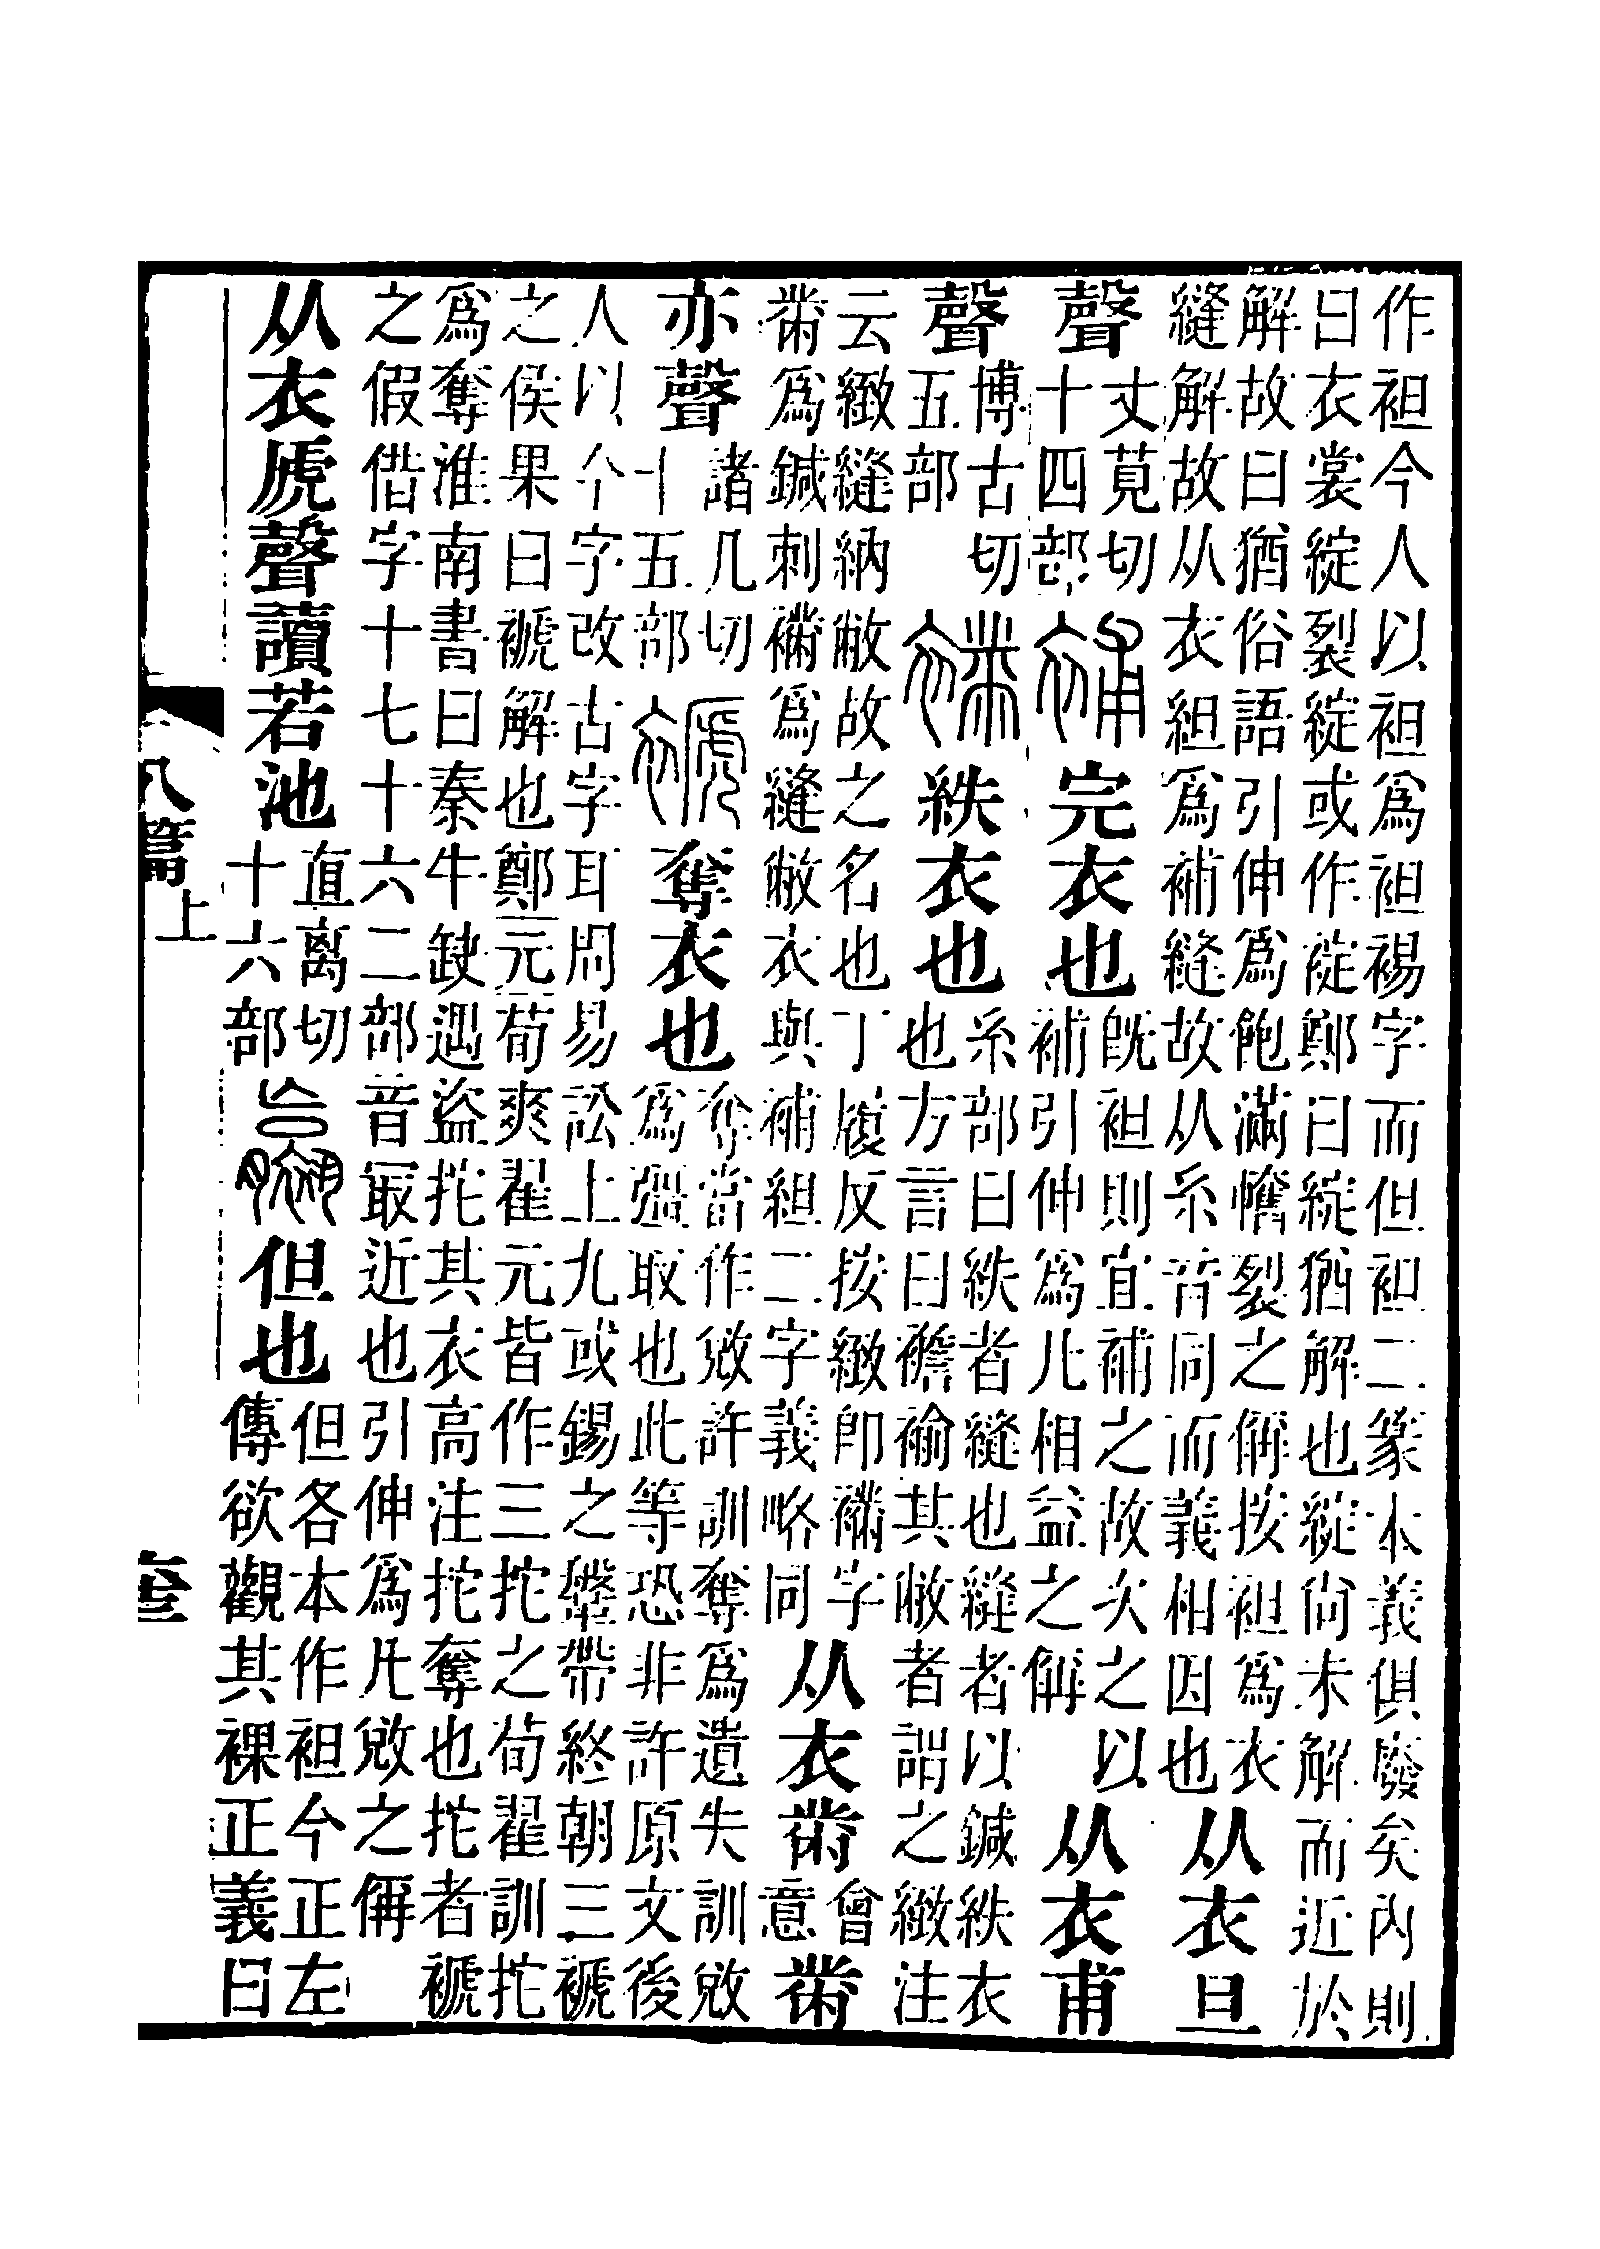 作袒今人以袒爲袒裼字而但袒二篆本義俱廢矣內則
曰衣裳綻裂綻或作䘺鄭曰綻猶解也綻尙未解而近於
解故曰猶俗語引伸爲飽滿㡜裂之偁按袒爲衣
縫解故从衣組爲補縫故从糸音同而義相因也
从衣旦
聲
丈莧切
十四部
補
完衣也
旣袒則宜補之故次之以
補引伸爲凡相益之偁
从衣甫
聲
博古切
五部
襧
紩衣也
糸部曰紩者縫也縫者以鍼紩衣
也方言曰襜褕其敝者謂之緻注
云緻縫納敝故之名也丁履反按緻即襧字
黹爲鍼刺襧爲縫敝衣與補組二字義略同
从衣黹
會
意
黹
亦聲
諸几切
十五部
褫
奪衣也
奪當作敓許訓奪爲遺失訓敓
爲彊取也此等恐非許原文後
人以今字改古字耳周易訟上九或錫之鞶帶終朝三褫
之侯果曰褫解也鄭元荀爽翟元皆作三拕之荀翟訓拕
爲奪淮南書曰秦牛缺遇盜拕其衣高注拕奪也拕者褫
之假借字十七十六二部音冣近也引伸爲凡敓之偁
从衣虒聲讀若池
直离切
十六部
臝
但也
但各本作袒今正左
傳欲觀其裸正義曰
八篇上